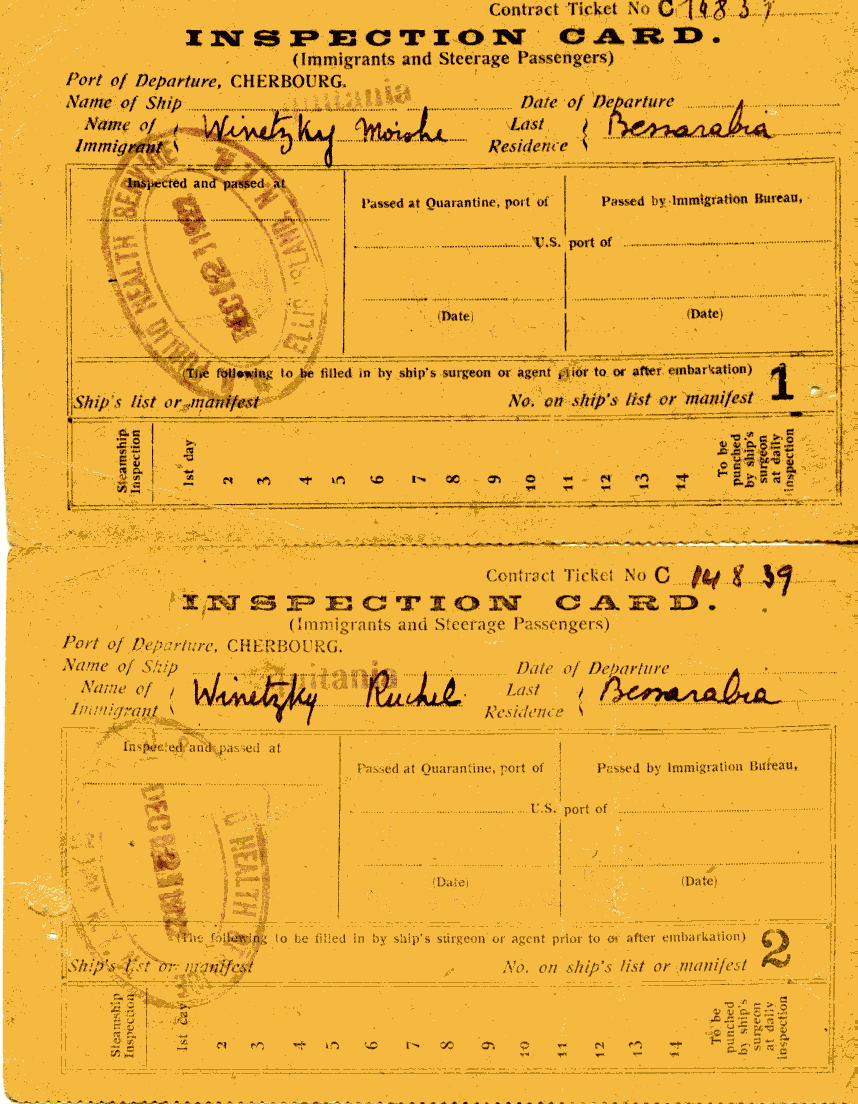 Contract Ticket No C 14839
INSPECTION CARD.
(Immigrants and Steerage Passengers)
Port of Departure, CHERBOURG.
Name of Ship Date of Departure
Name of Immigrant Winetzky Moishe Last Residence Bessarabia
Inspected and passed at
Passed at Quarantine, port of
U.S.
(Date)
Passed by Immigration Bureau,
port of
(Date)
PUBLIC HEALTH
ELLIS ISLAND, N.Y.
DEC 21 1922
(The following to be filled in by ship's surgeon or agent prior to or after embarkation)
Ship's list or manifest No. on ship's list or manifest 1
Steamship Inspection
1st day 2 3 4 5 6 7 8 9 10 11 12 13 14
To be punched by ship's surgeon at daily inspection
Contract Ticket No C 14839
INSPECTION CARD.
(Immigrants and Steerage Passengers)
Port of Departure, CHERBOURG.
Name of Ship Date of Departure
Name of Immigrant Winetzky Ruchel Last Residence Bessarabia
Inspected and passed at
Passed at Quarantine, port of
U.S.
(Date)
Passed by Immigration Bureau,
port of
(Date)
HEALTH
DEC 21 192
(The following to be filled in by ship's surgeon or agent prior to or after embarkation)
Ship's list or manifest No. on ship's list or manifest 2
Steamship Inspection
1st day 2 3 4 5 6 7 8 9 10 11 12 13 14
To be punched by ship's surgeon at daily inspection